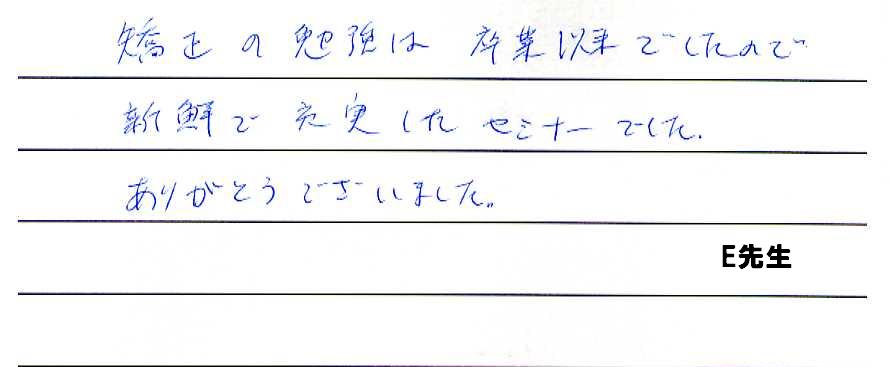 矯正の勉強は 卒業以来でしたので
新鮮で充実したセミナーでした.
ありがとうございました。
E先生